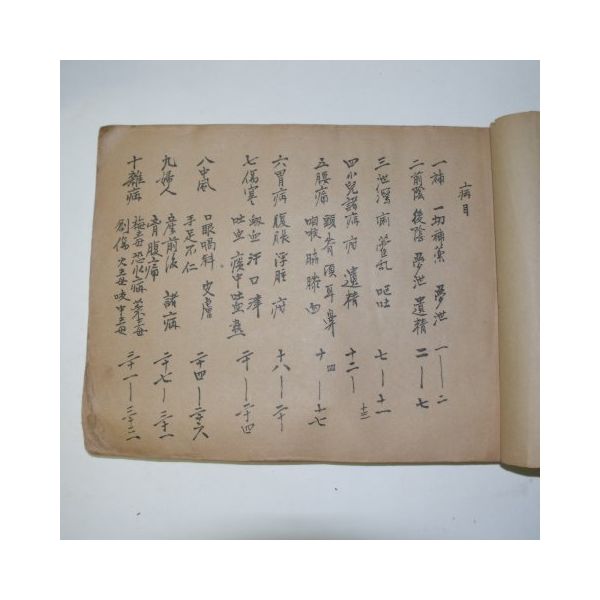 病目
一補 一切補藥 夢泄 一—二
二前陰 後陰 夢泄 遺精 二—七
三泄瀉 痢 霍乱 嘔吐 七—十一
四小兒諸病 遺精 十二—十三
五腰痛 頭 項 耳 鼻 十四—十七
咽喉 脇 膝 面
六胃病 腹脹 浮腫 十八—二十
七傷寒 汗 口 二十—二十四
吐虫 痰中吐
八中風 口眼喎斜 皮膚 二十四—二十六
手足不仁
九婦人 産前後 諸病 二十七—三十一
腹痛
十雜病 梅毒 恐水病 藥毒 三十一—三十二